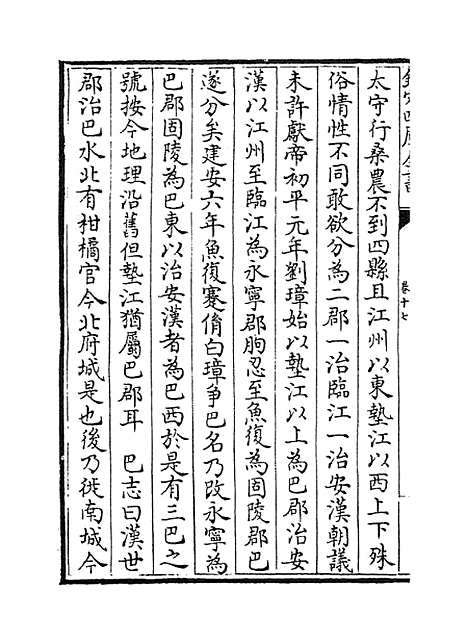 欽定四庫全書
卷十七
太守行桑農不到四縣且江州以東墊江以西上下殊
俗情性不同敢欲分為二郡一治臨江一治安漢朝議
未許獻帝初平元年劉璋始以墊江以上為巴郡治安
漢以江州至臨江為永寧郡朐忍至魚復為固陵郡巴
遂分矣建安六年魚復蹇脩白璋争巴名乃改永寧為
巴郡固陵為巴東以治安漢者為巴西於是有三巴之
號按今地理沿舊但墊江猶屬巴郡耳　巴志曰漢世
郡治巴水北有柑橘官今北府城是也後乃徙南城今